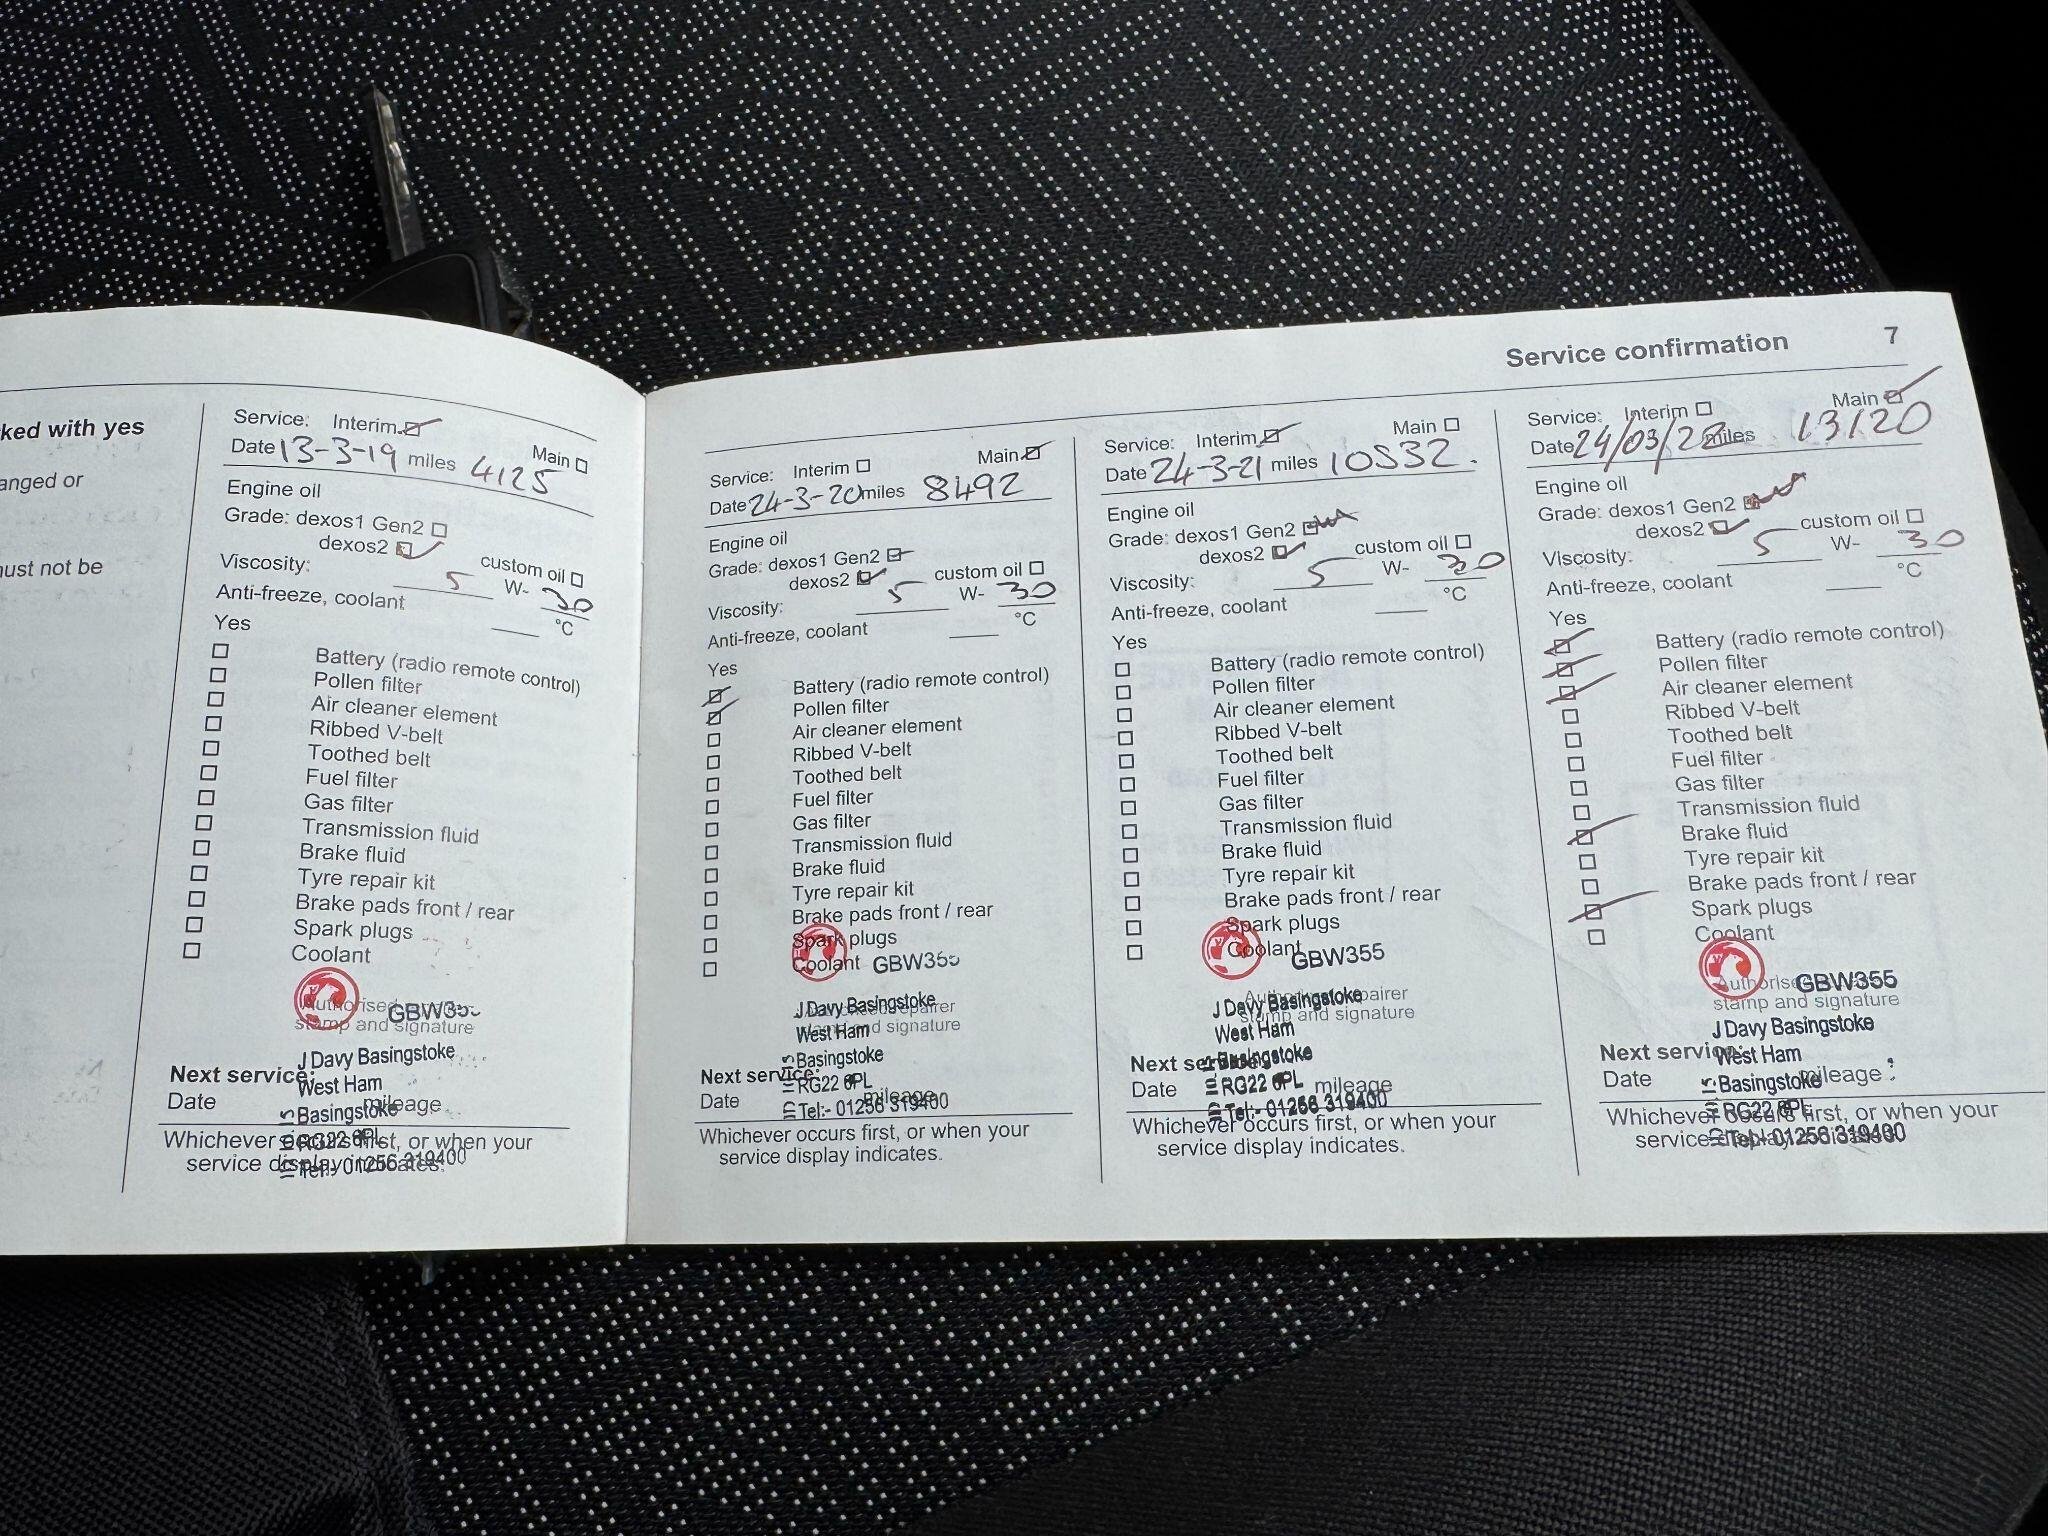 Service confirmation 7
ked with yes
anged or
ust not be
Service: Interim
Main
Date 13-3-19 miles 4125
Engine oil
Grade: dexos1 Gen2
dexos2
custom oil
Viscosity: 5 W- 30
Anti-freeze, coolant °C
Yes
Battery (radio remote control)
Pollen filter
Air cleaner element
Ribbed V-belt
Toothed belt
Fuel filter
Gas filter
Transmission fluid
Brake fluid
Tyre repair kit
Brake pads front / rear
Spark plugs
Coolant
Authorised
stamp and signature
J Davy Basingstoke
West Ham
Basingstoke
RG22 6PL
Tel:- 01256 319400
Next service:
Date mileage
Whichever occurs first, or when your
service display indicates.
Service: Interim Main
Date 24-3-20 miles 8492
Engine oil
Grade: dexos1 Gen2
dexos2 custom oil
Viscosity: 5 W- 30
Anti-freeze, coolant °C
Yes
Battery (radio remote control)
Pollen filter
Air cleaner element
Ribbed V-belt
Toothed belt
Fuel filter
Gas filter
Transmission fluid
Brake fluid
Tyre repair kit
Brake pads front / rear
Spark plugs
Coolant GBW355
J Davy Basingstoke
stamp and signature
West Ham
Basingstoke
RG22 6PL
Tel:- 01256 319400
Next service:
Date mileage
Whichever occurs first, or when your
service display indicates.
Service: Interim Main
Date 24-3-21 miles 10532.
Engine oil
Grade: dexos1 Gen2
dexos2 custom oil
Viscosity: 5 W- 30
Anti-freeze, coolant °C
Yes
Battery (radio remote control)
Pollen filter
Air cleaner element
Ribbed V-belt
Toothed belt
Fuel filter
Gas filter
Transmission fluid
Brake fluid
Tyre repair kit
Brake pads front / rear
Spark plugs
Coolant GBW355
Authorised repairer
stamp and signature
J Davy Basingstoke
West Ham
Basingstoke
RG22 6PL
Tel:- 01256 319400
Next service:
Date mileage
Whichever occurs first, or when your
service display indicates.
Service: Interim Main
Date 24/03/22 miles 13120
Engine oil
Grade: dexos1 Gen2
dexos2 custom oil
Viscosity: 5 W- 30
Anti-freeze, coolant °C
Yes
Battery (radio remote control)
Pollen filter
Air cleaner element
Ribbed V-belt
Toothed belt
Fuel filter
Gas filter
Transmission fluid
Brake fluid
Tyre repair kit
Brake pads front / rear
Spark plugs
Coolant
GBW355
stamp and signature
J Davy Basingstoke
West Ham
Basingstoke
RG22 6PL
Tel:- 01256 319400
Next service:
Date mileage
Whichever occurs first, or when your
service display indicates.